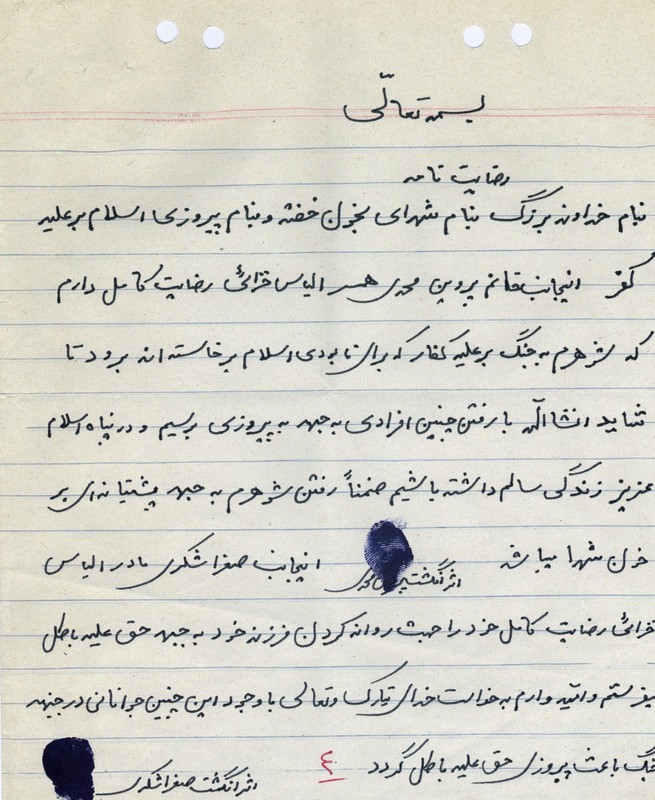 بسمه تعالی
رضایت نامه
بنام خداوند بزرگ بنام شهدای بخون خفته و بنام پیروزی اسلام بر علیه
کفر اینجانب خانم پروین محمدی همسر الیاس قزائی رضایت کامل دارم
که شوهرم به جنگ بر علیه کفار که برای نابودی اسلام برخاسته اند برود تا
شاید انشاالله با رفتن چنین افرادی به جبهه به پیروزی برسیم و در پناه اسلام
عزیز زندگی سالم داشته باشیم ضمناً رفتن شوهرم به جبهه پشتیبانه ای بر
خون شهدا میباشد اینجانب صغرا شکری مادر الیاس
اثر انگشت پروین محمدی
قزائی رضایت کامل خود را جهت روانه کردن فرزند خود به جبهه حق علیه باطل
میفرستم و امید وارم به خواست خدای تبارک و تعالی با وجود این چنین جوانانی در جبهه
جنگ باعث پیروزی حق علیه باطل گردد ٤
اثر انگشت صغرا شکری